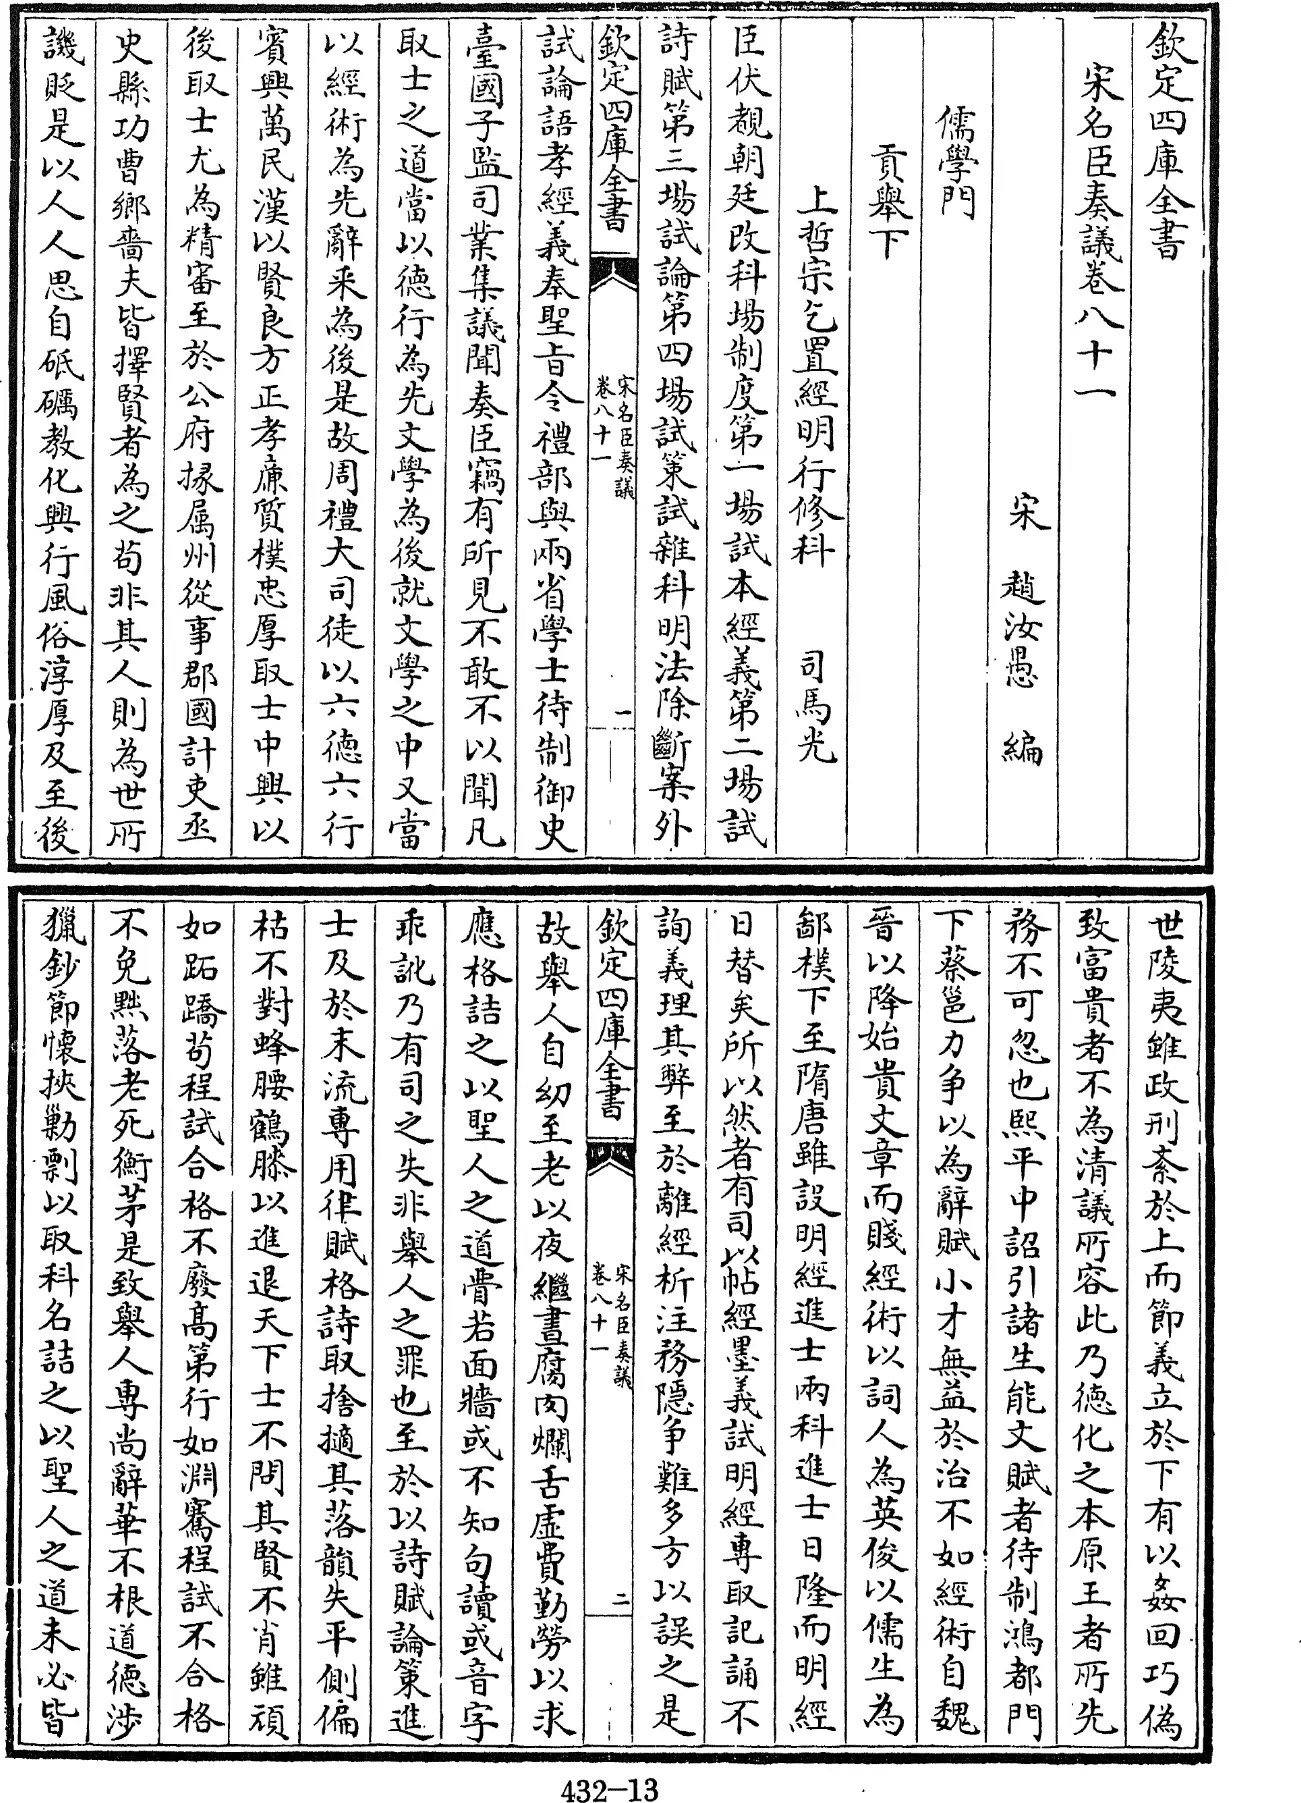 欽定四庫全書
宋名臣奏議卷八十一
宋 趙汝愚 編
儒學門
貢舉下
上哲宗乞置經明行修科 司馬光
臣伏覩朝廷改科場制度第一場試本經義第二場試
詩賦第三場試論第四場試策試雜科明法除斷案外
欽定四庫全書
宋名臣奏議
卷八十一
一
試論語孝經義奉聖旨令禮部與兩省學士待制御史
臺國子監司業集議聞奏臣竊有所見不敢不以聞凡
取士之道當以德行為先文學為後就文學之中又當
以經術為先辭采為後是故周禮大司徒以六德六行
賓興萬民漢以賢良方正孝廉質樸忠厚取士中興以
後取士尤為精審至於公府掾属州從事郡國計吏丞
史縣功曹鄉嗇夫皆擇賢者為之苟非其人則為世所
譏貶是以人人思自砥礪教化興行風俗淳厚及至後
世陵夷雖政刑紊於上而節義立於下有以姦回巧偽
致富貴者不為清議所容此乃德化之本原王者所先
務不可忽也熙平中詔引諸生能文賦者待制鴻都門
下蔡邕力争以為辭賦小才無益於治不如經術自魏
晉以降始貴文章而賤經術以詞人為英俊以儒生為
鄙樸下至隋唐雖設明經進士兩科進士日隆而明經
日替矣所以然者有司以帖經墨義試明經專取記誦不
詢義理其弊至於離經析注務隱争難多方以誤之是
欽定四庫全書
宋名臣奏議
卷八十一
二
故舉人自幼至老以夜繼晝腐肉爛舌虛費勤勞以求
應格詰之以聖人之道瞢若面牆或不知句讀或音字
乖訛乃有司之失非舉人之罪也至於以詩賦論策進
士及於末流專用律賦格詩取捨擿其落韻失平側偏
枯不對蜂腰鶴膝以進退天下士不問其賢不肖雖頑
如跖蹻苟程試合格不廢髙第行如淵騫程試不合格
不免黜落老死衡茅是致舉人專尚辭華不根道德涉
獵鈔節懷挾勦剽以取科名詰之以聖人之道未必皆
432-13